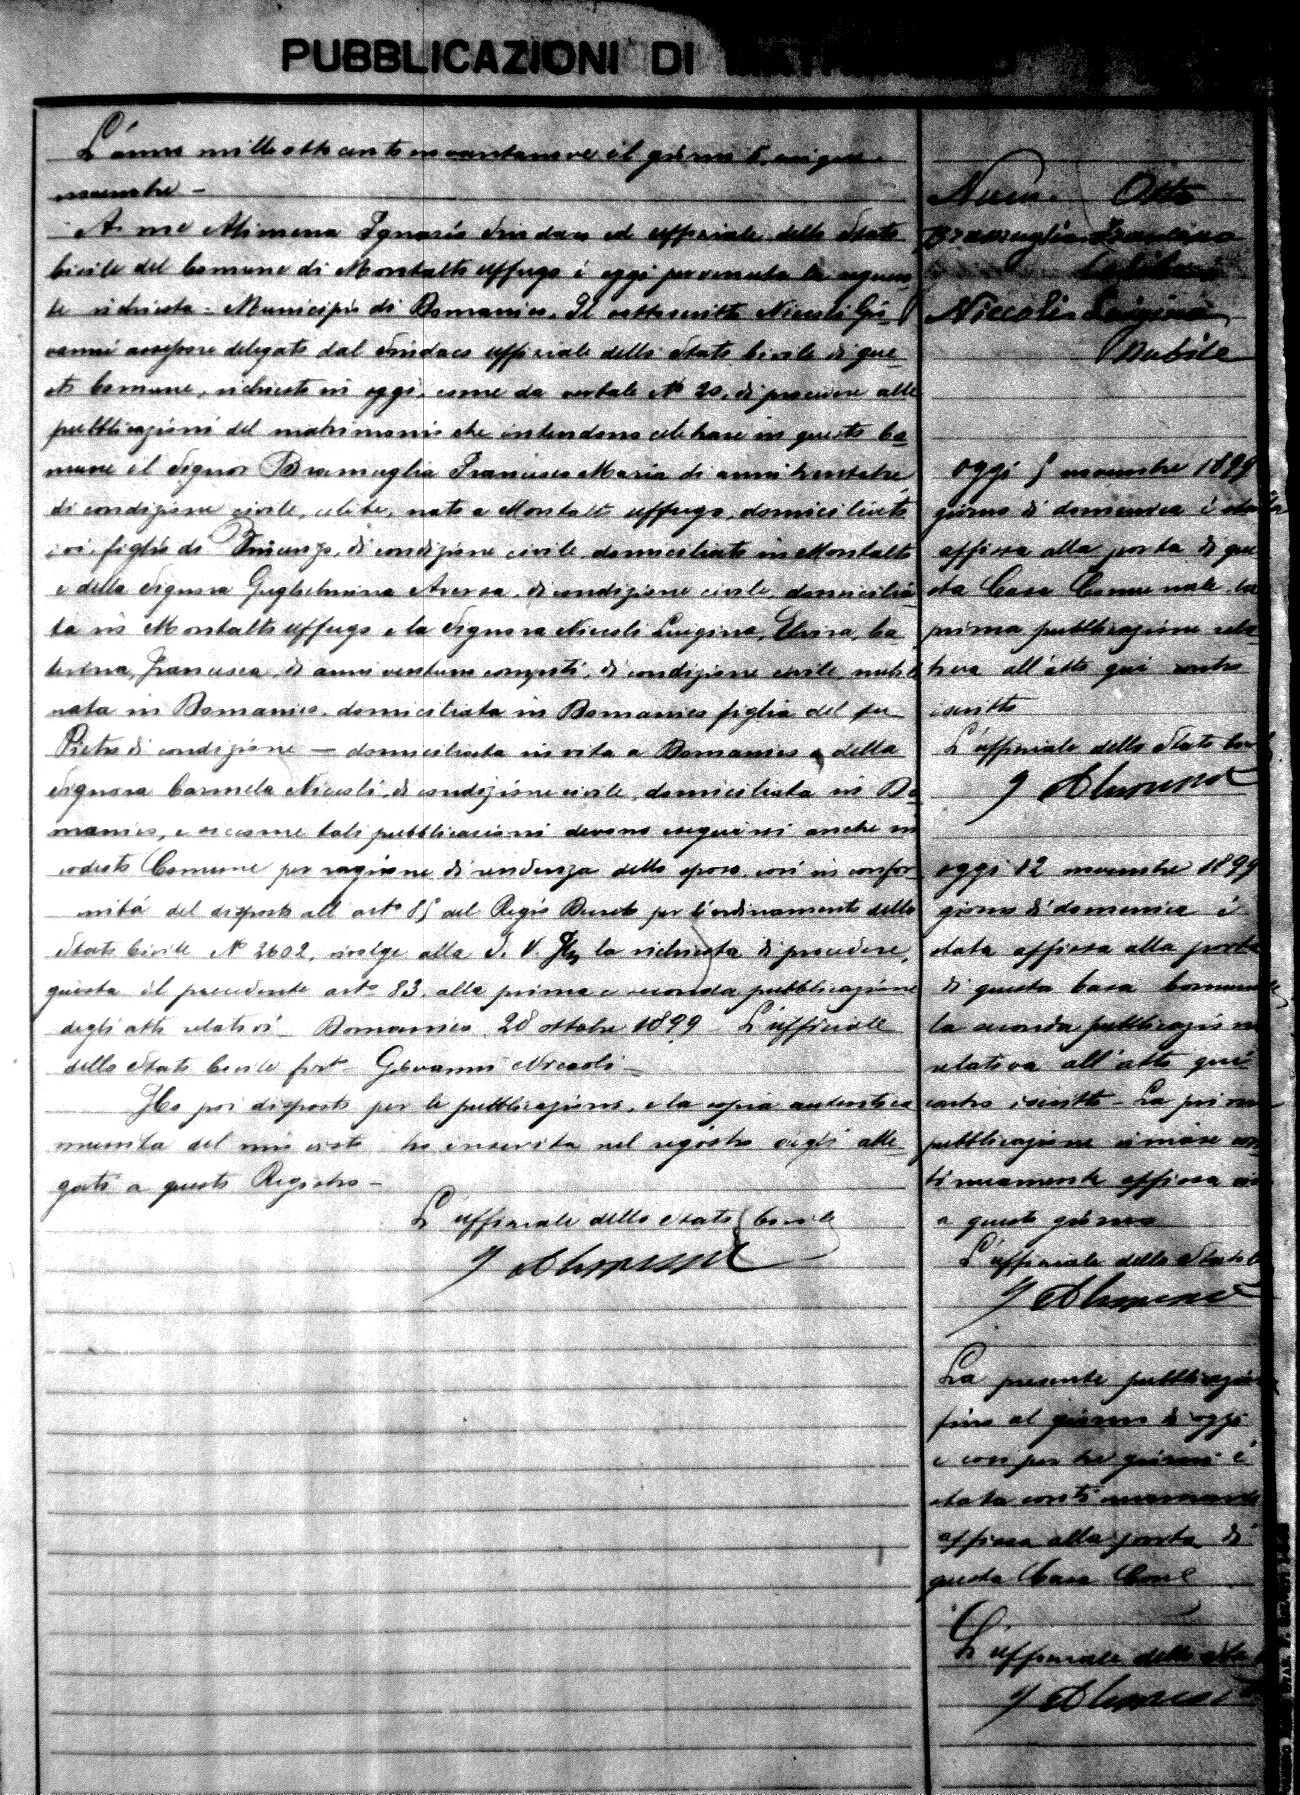 PUBBLICAZIONI DI
L'anno mille ottocento novantanove il giorno 5 cinque
novembre -
A me Alimena Ignazio Sindaco ed uffiziale dello Stato
Civile del Comune di Montalto Uffugo è oggi pervenuta la seguen-
te richiesta - Municipio di Domanico. Il sottoscritto Niccoli Gio-
vanni assessore delegato dal Sindaco uffiziale dello Stato Civile di que-
sto Comune, richiesto in oggi, come da verbale No 20, di procedere alle
pubblicazioni del matrimonio che intendono celebrare in questo Co-
mune il Signor Bramuglia Francesco Maria di anni trentatre
di condizione civile, celibe, nato a Montalto Uffugo, domiciliato
ivi, figlio di Vincenzo, di condizione civile domiciliato in Montalto
e della Signora Guglielmina Aversa, di condizione civile, domicilia-
ta in Montalto Uffugo e la Signora Niccoli Luigina, Elvira, Ca-
terina, Francesca, di anni ventuno compiti, di condizione civile, nubile
nata in Domanico, domiciliata in Domanico figlia del fu
Pietro di condizione — domiciliato in vita a Domanico e della
Signora Carmela Niccoli, di condizione civile, domiciliata in Do-
manico, e siccome tali pubblicazioni devono eseguirsi anche in
codesto Comune per ragione di residenza dello sposo, così in confor-
mità del disposto all'arto 85 del Regio Decreto per l'ordinamento dello
Stato Civile No 2602, rivolge alla S. V. Ill. la richiesta di procedere,
giusta il precedente arto 83, alla prima e seconda pubblicazione
degli atti relativi - Domanico 28 ottobre 1899 L'uffiziale
dello Stato Civile firto Giovanni Niccoli -
Ho poi disposto per le pubblicazioni, e la copia autentica
munita del mio visto ho inserita nel registro degli alle-
gati a questo Registro -
L'uffiziale dello Stato Civile
I Alimena
Num. Otto
Bramuglia Francesco
Celibe
Niccoli Luigina
Nubile
Oggi 5 novembre 1899
giorno di domenica è stata
affissa alla porta di que-
sta Casa Comunale la
prima pubblicazione rela-
tiva all'atto qui contro
iscritto
L'uffiziale dello Stato Civile
I Alimena
Oggi 12 novembre 1899
giorno di domenica è
stata affissa alla porta
di questa Casa Comunale
la seconda pubblicazione
relativa all'atto qui
contro iscritto - La prima
pubblicazione rimase con-
tinuamente affissa sino
a questo giorno
L'uffiziale dello Stato
I Alimena
La presente pubblicazione
fino al giorno di oggi
e così per tre giorni è
stata continuamente
affissa alla porta di
questa Casa Comle
L'uffiziale dello Stato
I Alimena